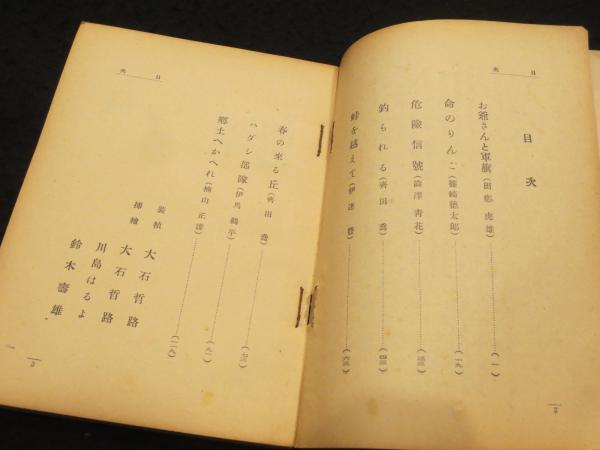 目次
目次
お爺さんと軍旗(田郷虎雄)……(一)
命のりんご(篠崎徳太郎)……(一九)
危険信號(澁澤青花)……(三三)
釣られる(齊田喬)……(四三)
峠を越えて(伊達豊)……(六三)
2
目次
春の來る丘(齊田喬)……(七三)
ハダシ部隊(伊馬鵜平)……(九一)
郷土へかへれ(楠山正雄)……(一一九)
装幀 大石哲路
挿繪 大石哲路
川島はるよ
鈴木壽雄
3